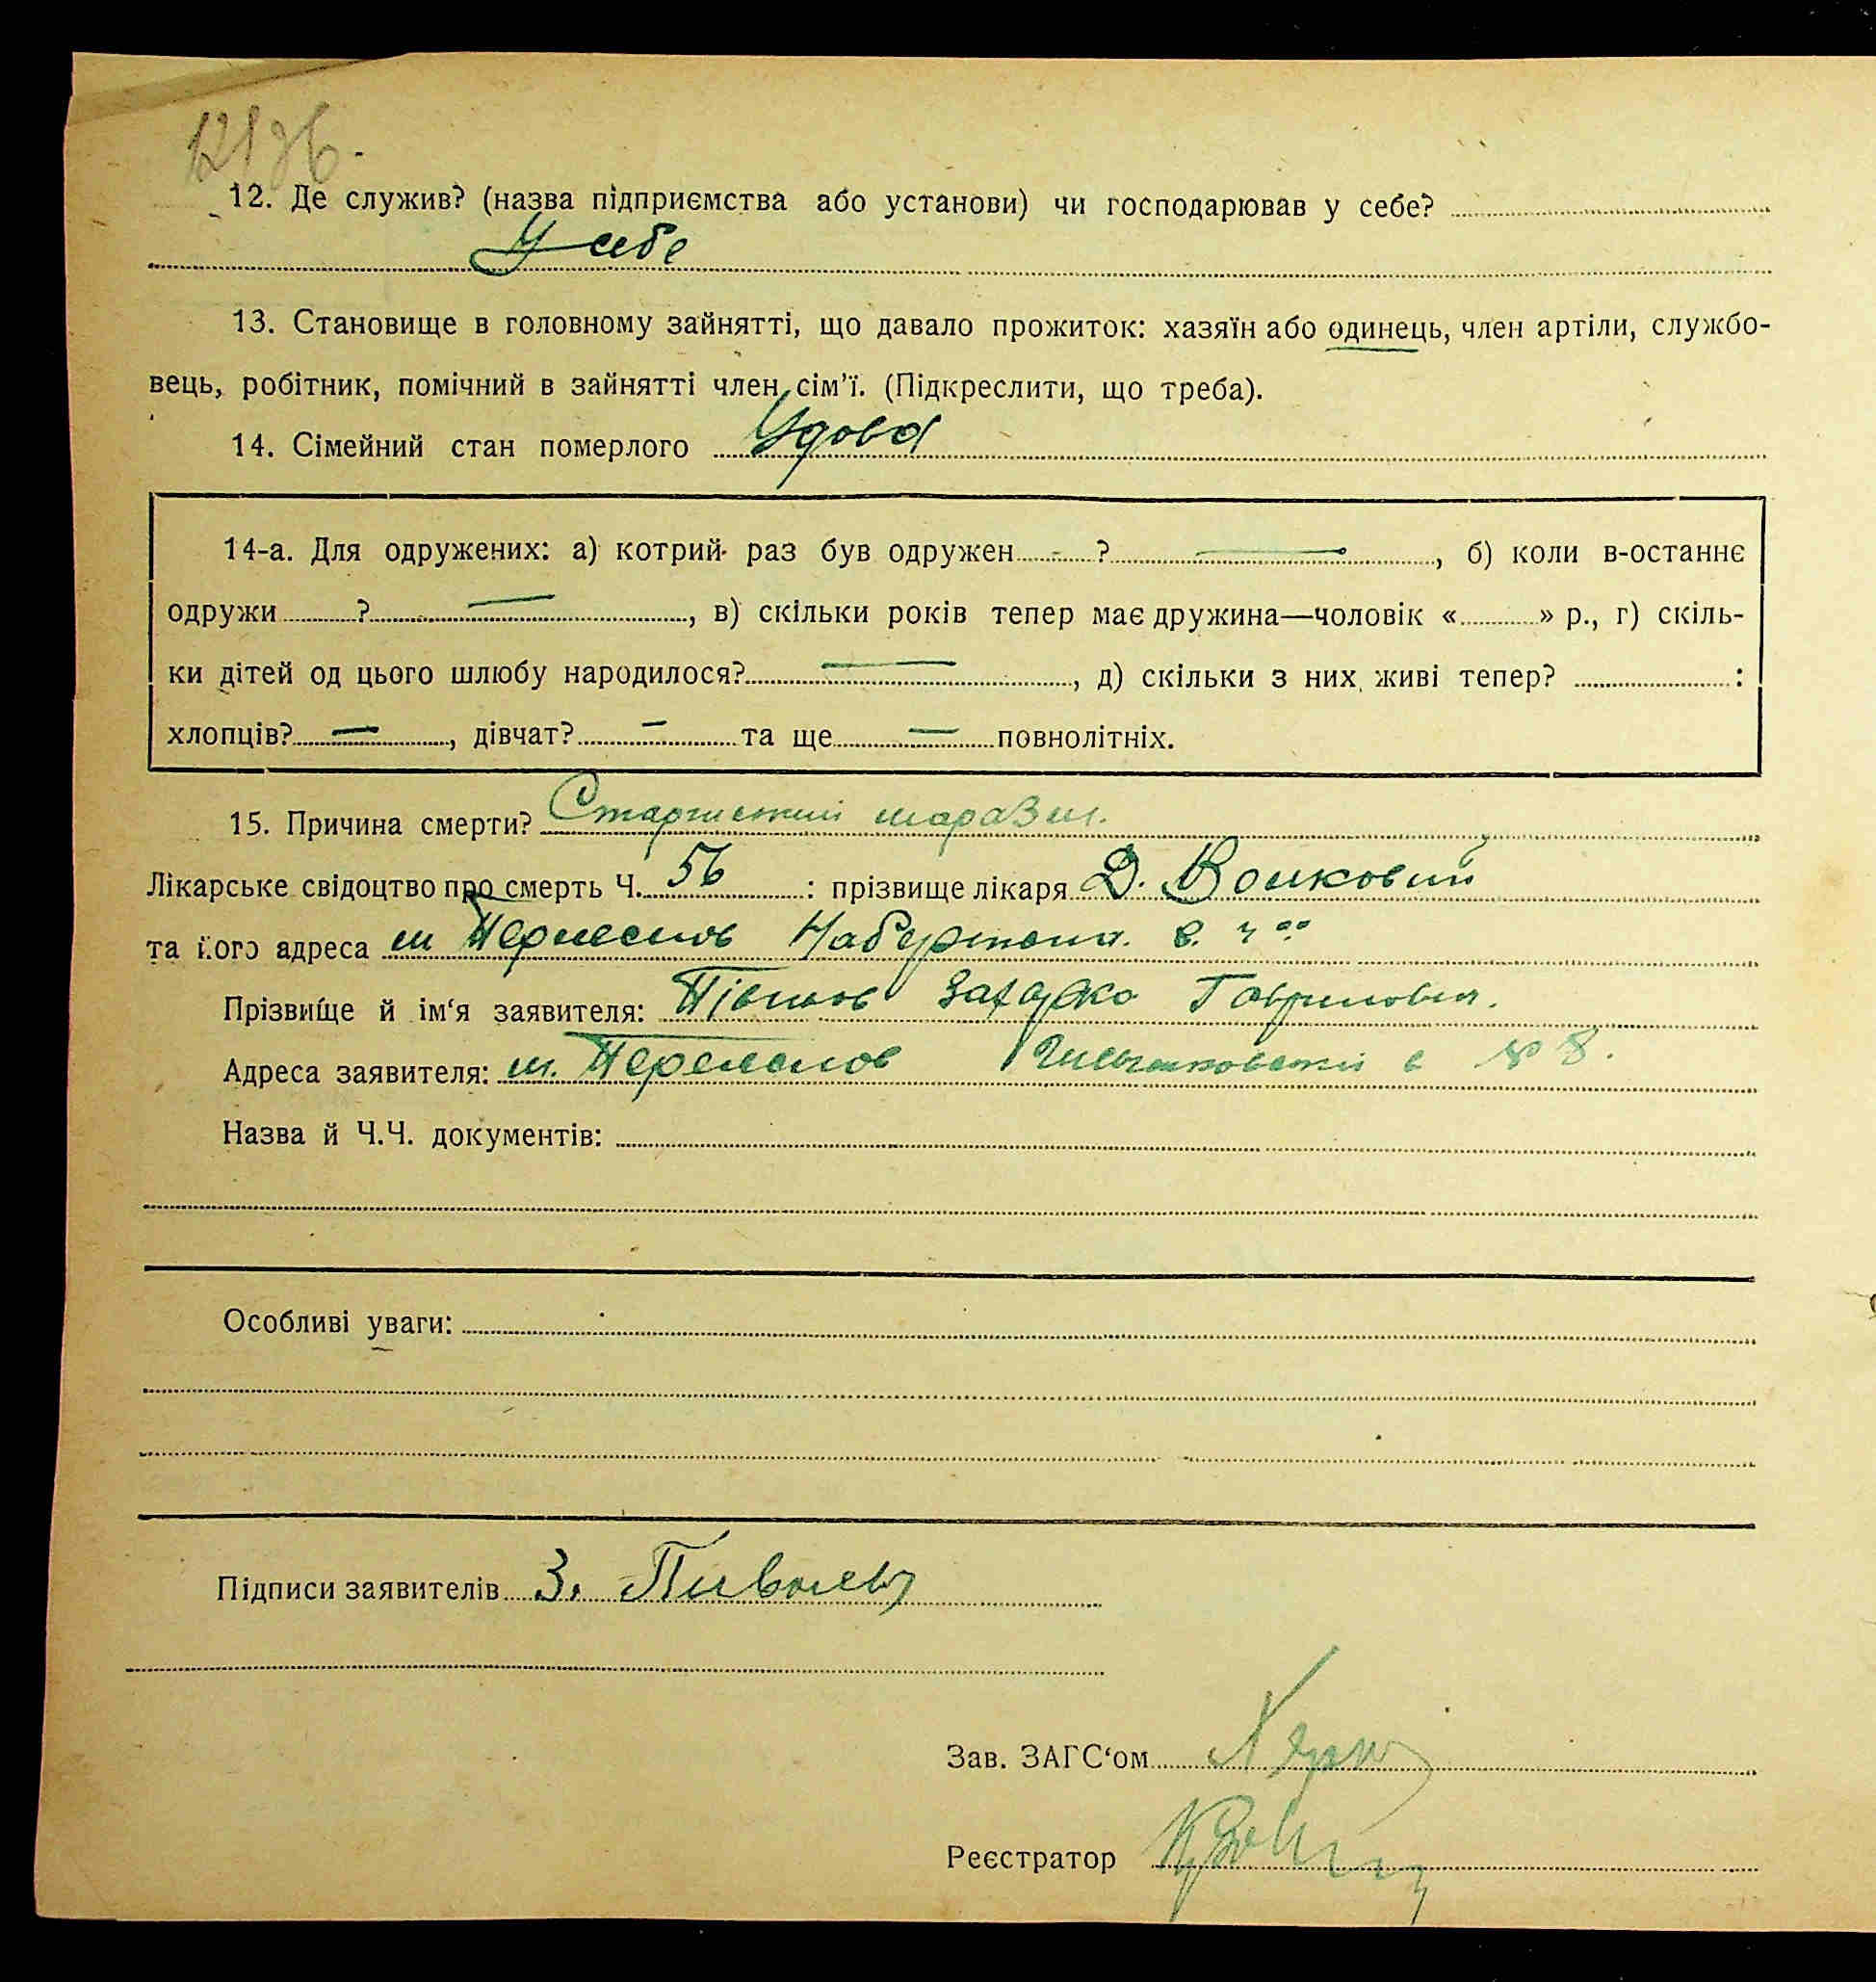 12. Де служив? (назва підприємства або установи) чи господарював у себе?
У себе
13. Становище в головному зайнятті, що давало прожиток: хазяїн або одинець, член артіли, службо-
вець, робітник, помічний в зайнятті член сім’ї. (Підкреслити, що треба).
14. Сімейний стан померлого Удова
14-а. Для одружених: а) котрий раз був одружен ........ ? ........ , б) коли в-останнє
одружи ........ ? ........ , в) скільки років тепер має дружина—чоловік « ........ » р., г) скіль-
ки дітей од цього шлюбу народилося? ........ , д) скільки з них живі тепер? ........ :
хлопців? — , дівчат? — та ще — повнолітніх.
15. Причина смерти?
Лікарське свідоцтво про смерть Ч. 56 : прізвище лікаря Д.
та його адреса м
Прізвище й ім‘я заявителя: Гаврилович.
Адреса заявителя: м. № 8.
Назва й Ч.Ч. документів:
Особливі уваги:
Підписи заявителів З.
Зав. ЗАГС‘ом
Реєстратор